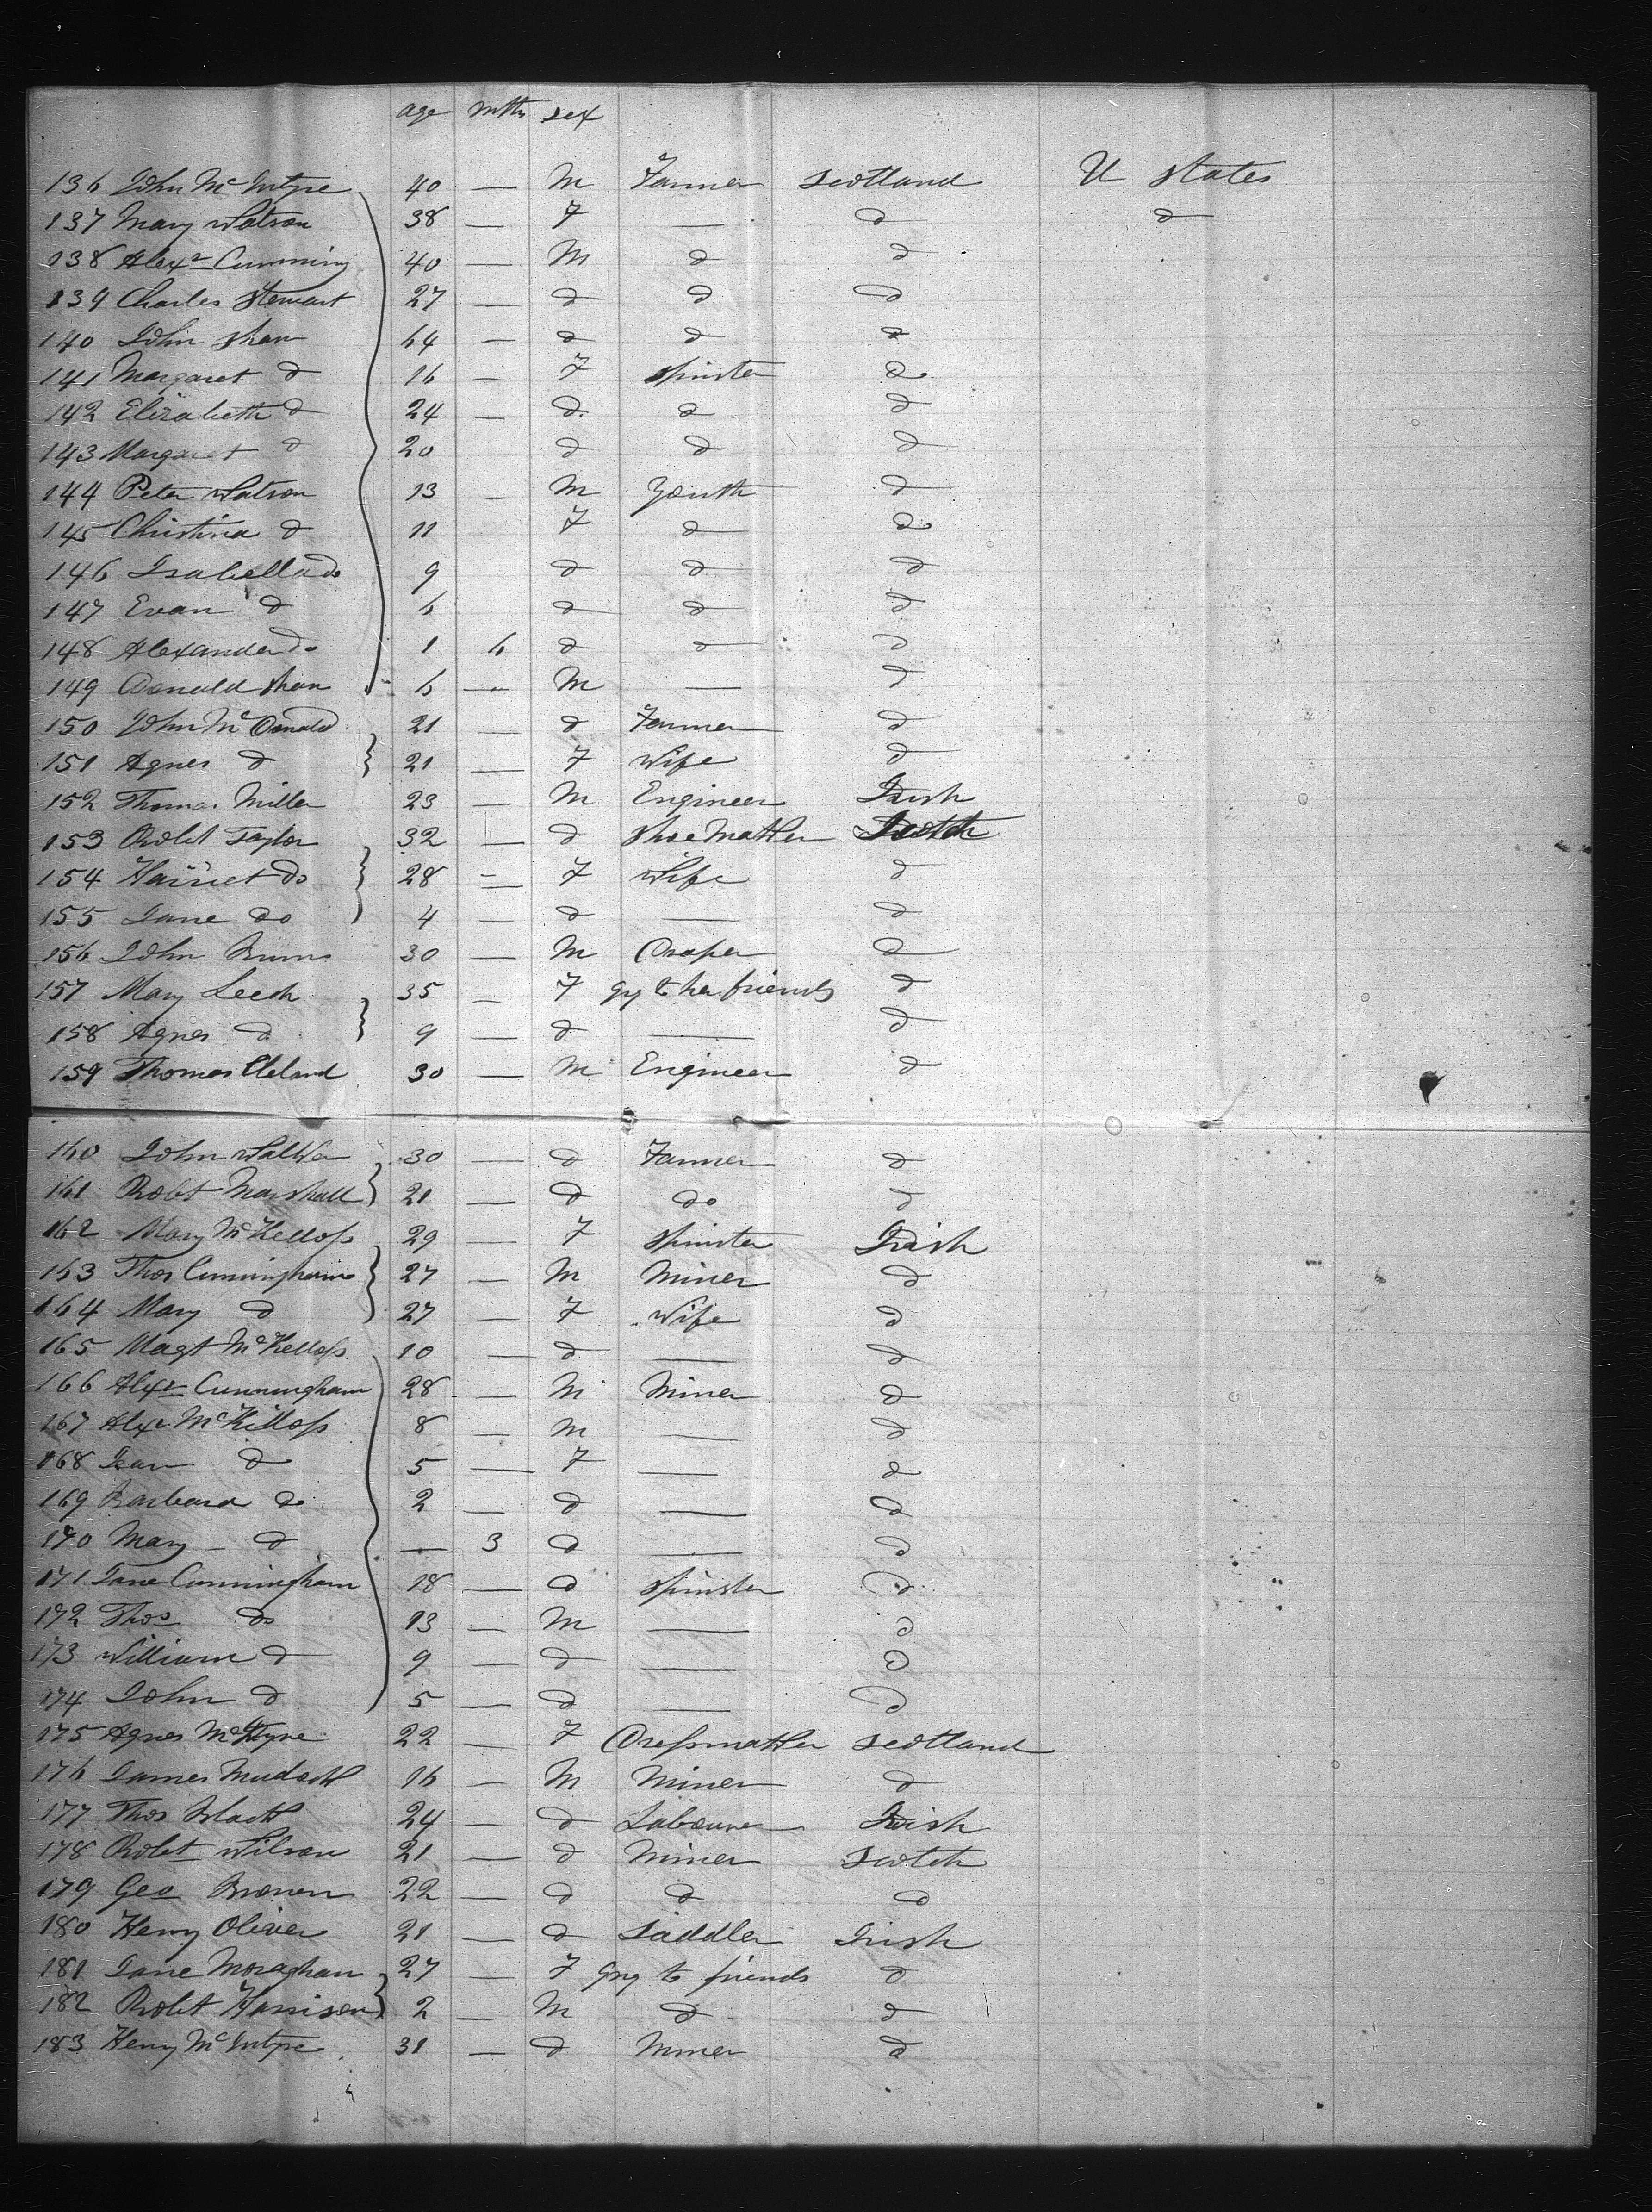 age mths sex
136 John McIntyre 40 — M Farmer Scotland U States
137 Mary Watson 38 — F — d d
138 Alexr Cumming 40 — M d d
139 Charles Stewart 27 — d d d
140 John Shaw 64 — d d d
141 Margaret d 16 — F Spinster do
142 Elizabeth d 24 — d d d
143 Margaret d 20 d d d
144 Peter Watson 13 — M Youth d
145 Christina d 11 F d do
146 Isabella do 9 d d d
147 Evan d 6 d d d
148 Alexander do 1 6 d d d
149 Donald Shaw 6 — M — d
150 John McDonald 21 — d Farmer d
151 Agnes d 21 — F Wife d
152 Thomas Miller 23 — M Engineer Irish
153 Robt Taylor 32 — d Shoemakker Scotch
154 Harriet do 28 — F Wife d
155 Jane do 4 — d — d
156 John Burns 30 — M Draper d
157 Mary Leech 35 — F gg to her friends d
158 Agnes d 9 — d — d
159 Thomas Cleland 30 — M Engineer d
160 John Walker 30 — d Farmer d
161 Robt Marshall 21 — d do d
162 Mary McKellop 29 — F Spinster Irish
163 Thos Cunningham 27 — M Miner d
164 Mary d 27 — F Wife d
165 Magt McKellop 10 — d — d
166 Alexr Cunningham 28 — M Miner d
167 Alexr McKillop 8 — M — d
168 Jean d 5 — F — d
169 Barbara do 2 — d — d
170 Mary — d — 3 d — d
171 Jane Cunningham 18 — d Spinster d
172 Thos do 13 — M — d
173 William d 9 — d — d
174 John d 5 — d — d
175 Agnes 22 — F Dressmakker Scotland
176 James Mudock 16 — M Miner d
177 Thos Black 24 — d Labourer Irish
178 Robt Wilson 21 — d Miner Scotch
179 Geo Brown 22 — d d d
180 Henry Oliver 21 — d Saddler Irish
181 Jane Monaghan 27 — F gng to friends d
182 Robt Harrison 2 — M d d
183 Henry McIntyre 31 — d Miner d